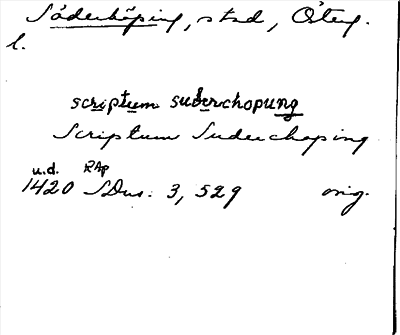 Söderköping, stad, Österg.
l.
scriptum suderchopung
Scriptum Suderchoping
u.d. RAp
1420 SDns: 3, 529 orig.